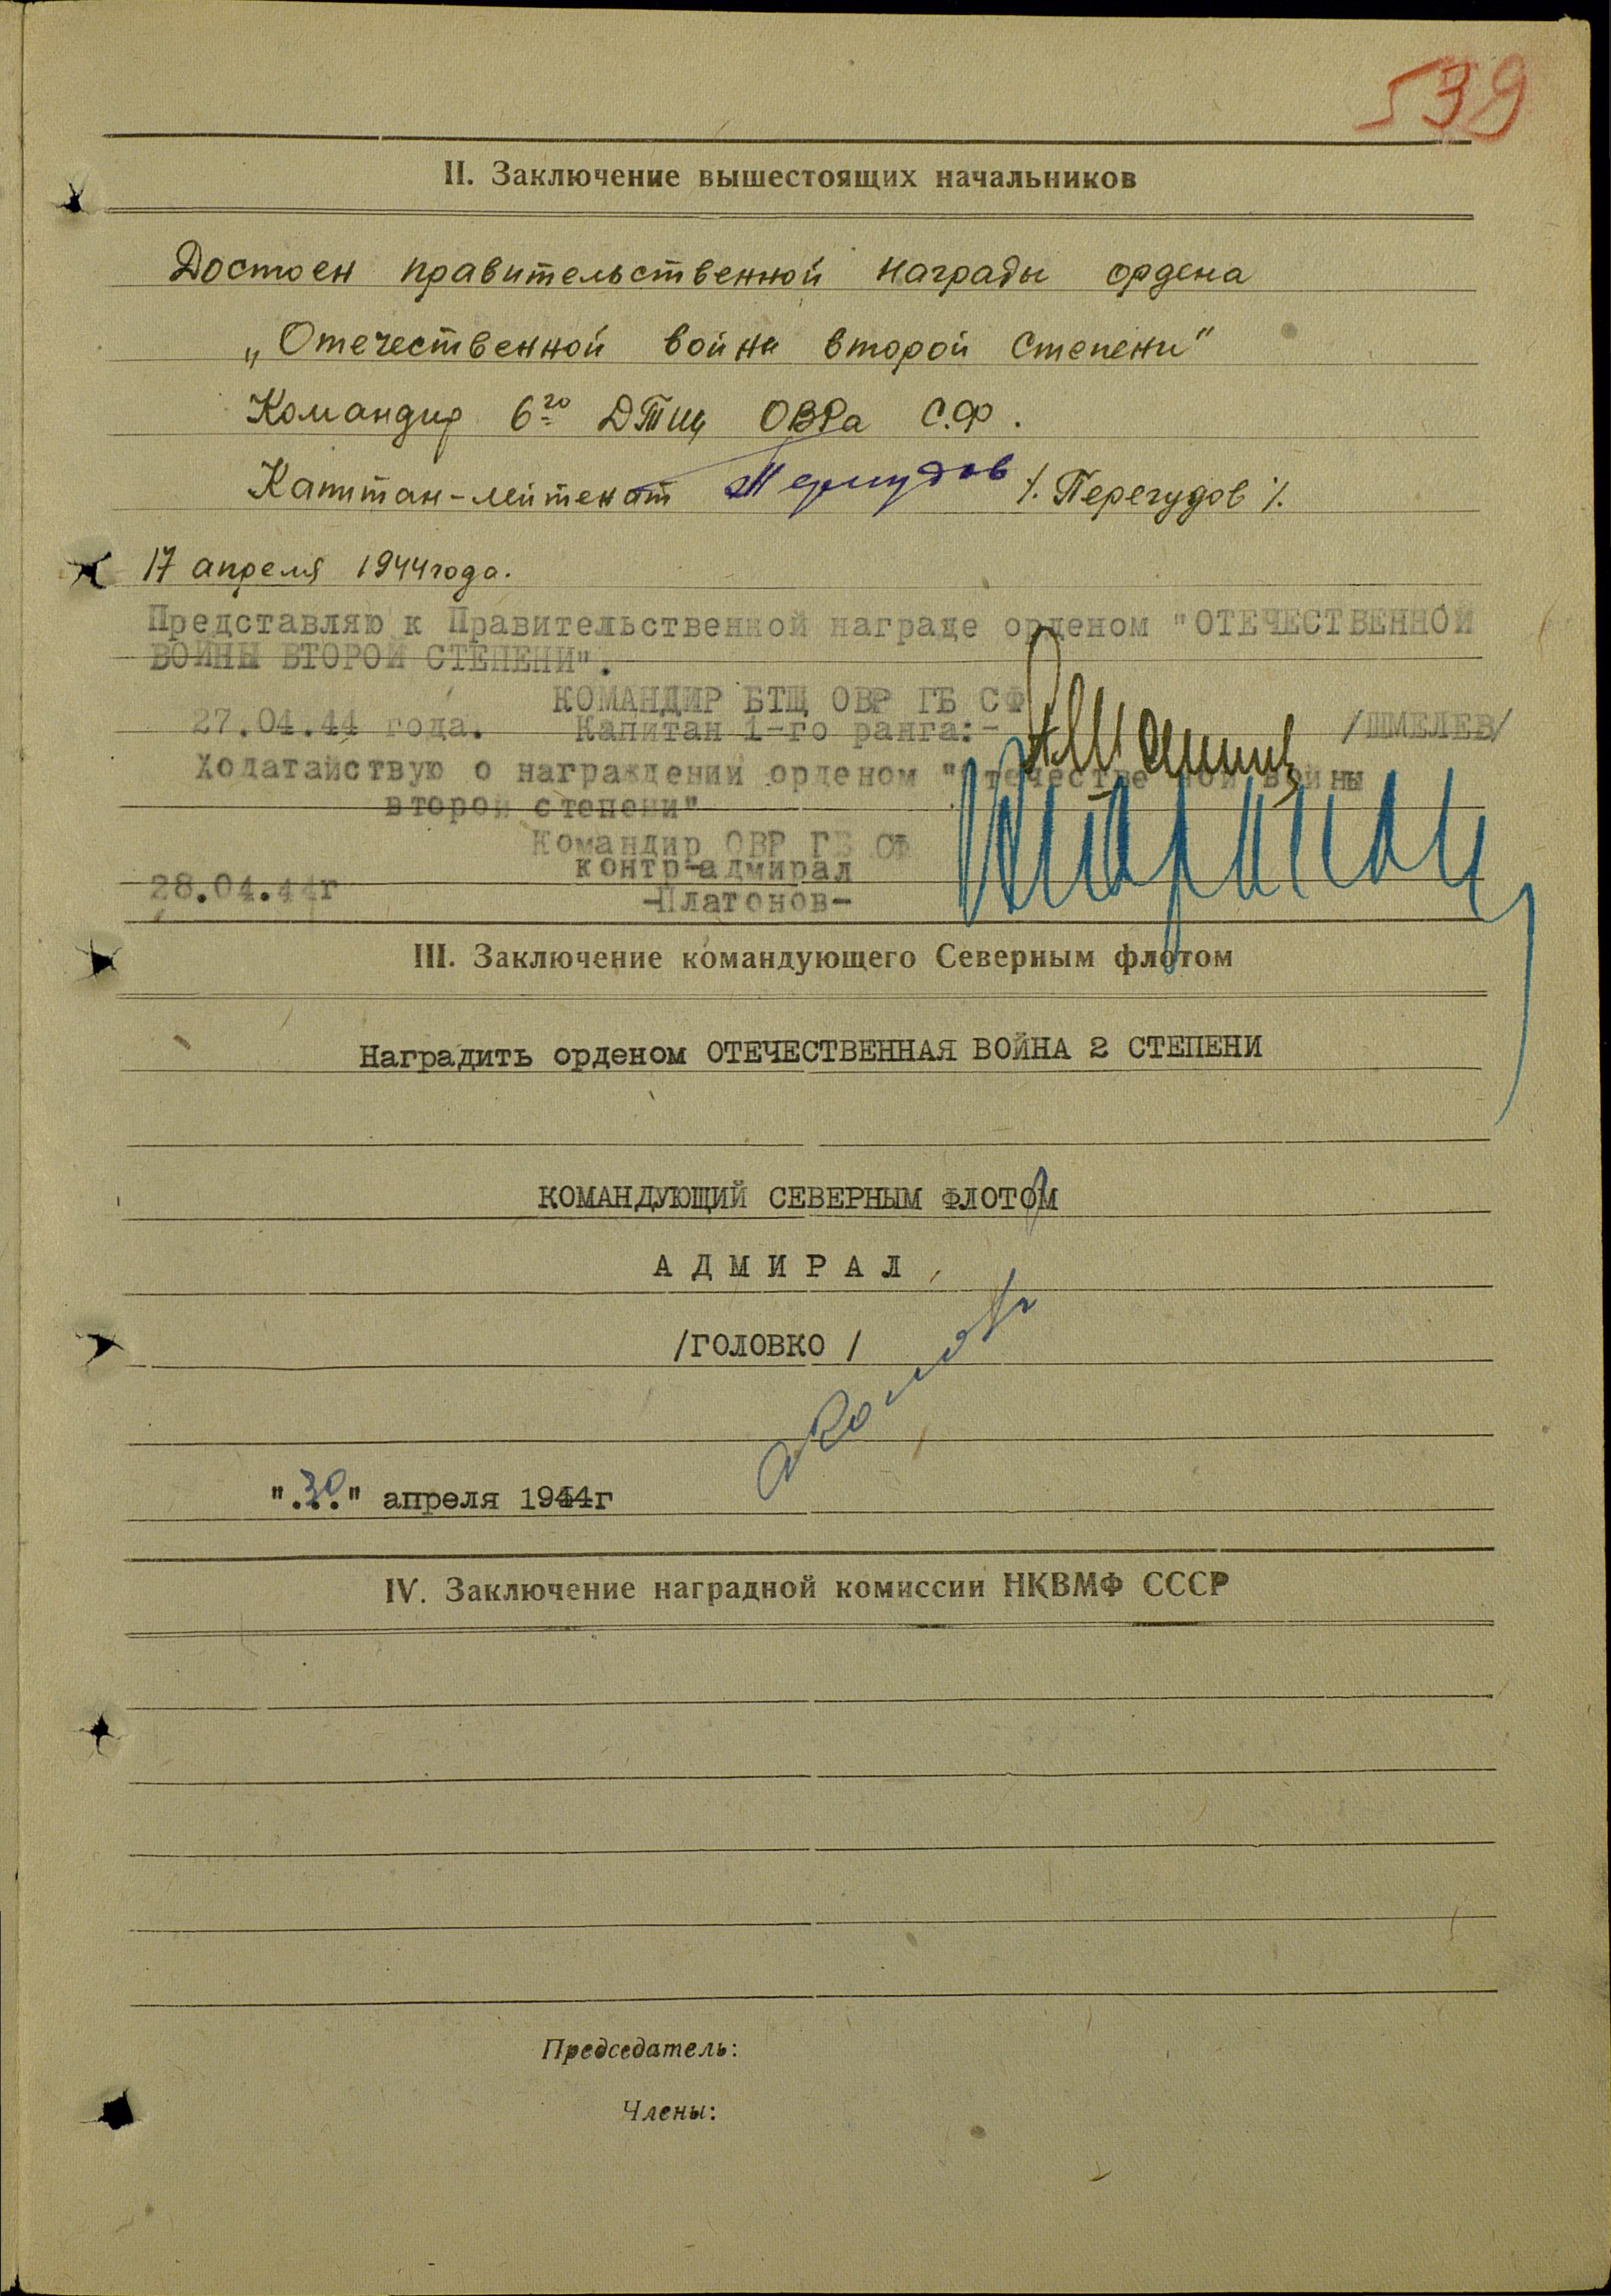 539
II. Заключение вышестоящих начальников
Достоен правительственной награды ордена
„Отечественной война второй степени"
Командир 6го ДТщ ОВРа С.Ф.
Капитан-лейтенат /. Перегудов /.
17 апреля 1944 года.
Представляю к Правительственной награде орденом "ОТЕЧЕСТВЕННОЙ
ВОЙНЫ ВТОРОЙ СТЕПЕНИ".
КОМАНДИР БТЩ ОВР ГБ СФ
27.04.44 года. Капитан 1-го ранга:- /ШМЕЛЕВ/
Ходатайствую о награждении орденом "Отечественной войны
второй степени"
Командир ОВР ГБ СФ
контр-адмирал
28.04.44г -Платонов-
III. Заключение командующего Северным флотом
Наградить орденом ОТЕЧЕСТВЕННАЯ ВОЙНА 2 СТЕПЕНИ
КОМАНДУЮЩИЙ СЕВЕРНЫМ ФЛОТОМ
АДМИРАЛ
/ГОЛОВКО /
".30." апреля 1944г
IV. Заключение наградной комиссии НКВМФ СССР
Председатель:
Члены: